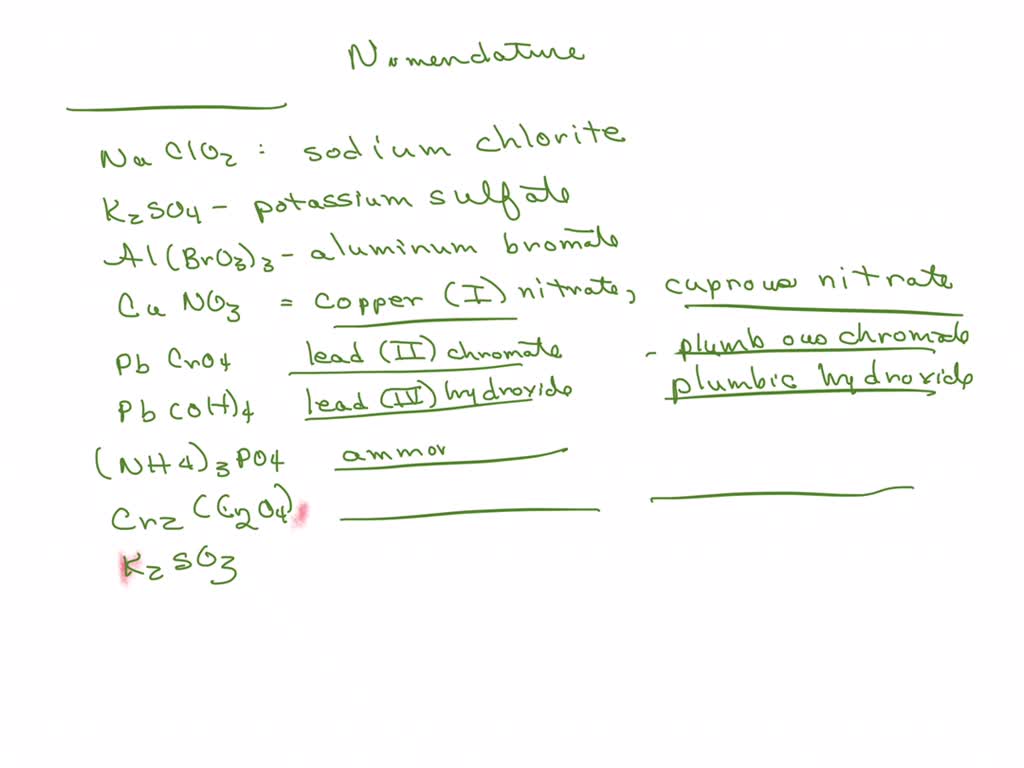 Nomendature
NaClO2 : sodium chlorite
K2SO4 - potassium sulfate
Al(BrO3)3 - aluminum bromate
CuNO3 = copper (I) nitrate, cuprous nitrate
PbCrO4 lead (II) chromate - plumbous chromate
Pb(OH)4 lead (IV) hydroxide plumbic hydroxide
(NH4)3PO4 ammon
Cr2(C2O4)
K2SO3